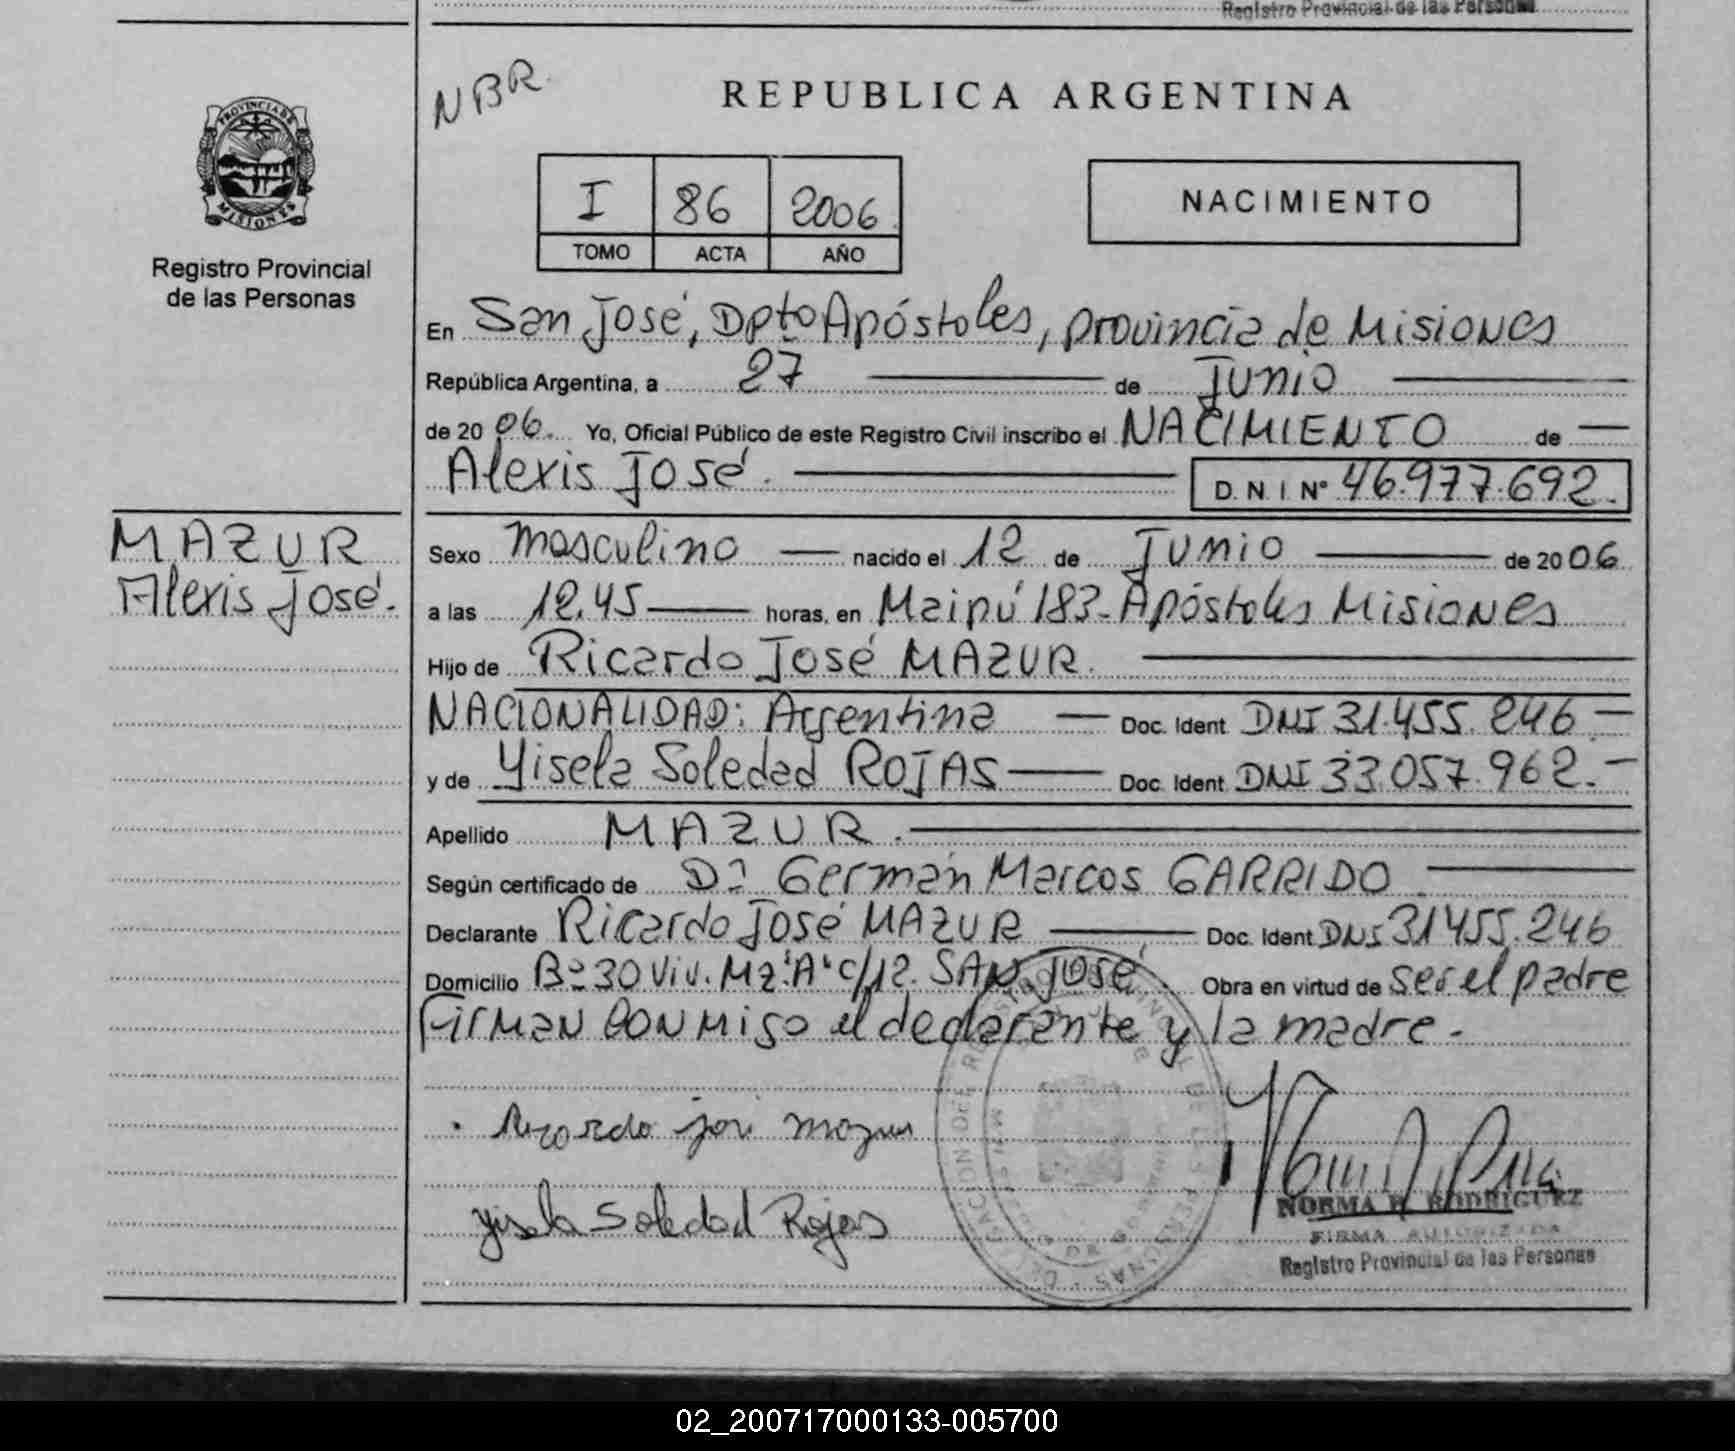 Registro Provincial de las Personas
NBR.
REPUBLICA ARGENTINA
PROVINCIA DE
MISIONES
Registro Provincial
de las Personas
I 86 2006
TOMO ACTA AÑO
NACIMIENTO
En San José, Dpto Apóstoles, provincia de Misiones
República Argentina, a 27 de Junio
de 20 06. Yo, Oficial Público de este Registro Civil inscribo el NACIMIENTO de
Alexis José.
D. N. I. Nº 46.977.692.
MAZUR
Alexis José.
Sexo masculino nacido el 12 de Junio de 20 06
a las 12.45 horas, en Maipú 183 - Apóstoles Misiones
Hijo de Ricardo José MAZUR.
NACIONALIDAD: Argentina Doc. Ident DNI 31.455.246
y de Yisela Soledad ROJAS Doc. Ident DNI 33.057.962.-
Apellido MAZUR.
Según certificado de Germán Marcos GARRIDO
Declarante Ricardo José MAZUR Doc. Ident DNI 31455.246
Domicilio Bº 30 Viv. Mz "A" c/12. SAN José. Obra en virtud de ser el padre
Firman conmigo el declarante y la madre.-
Ricardo josé mazur
yisela Soledad Rojas
NORMA B. RODRIGUEZ
FIRMA AUTORIZADA
Registro Provincial de las Personas
02_200717000133-005700